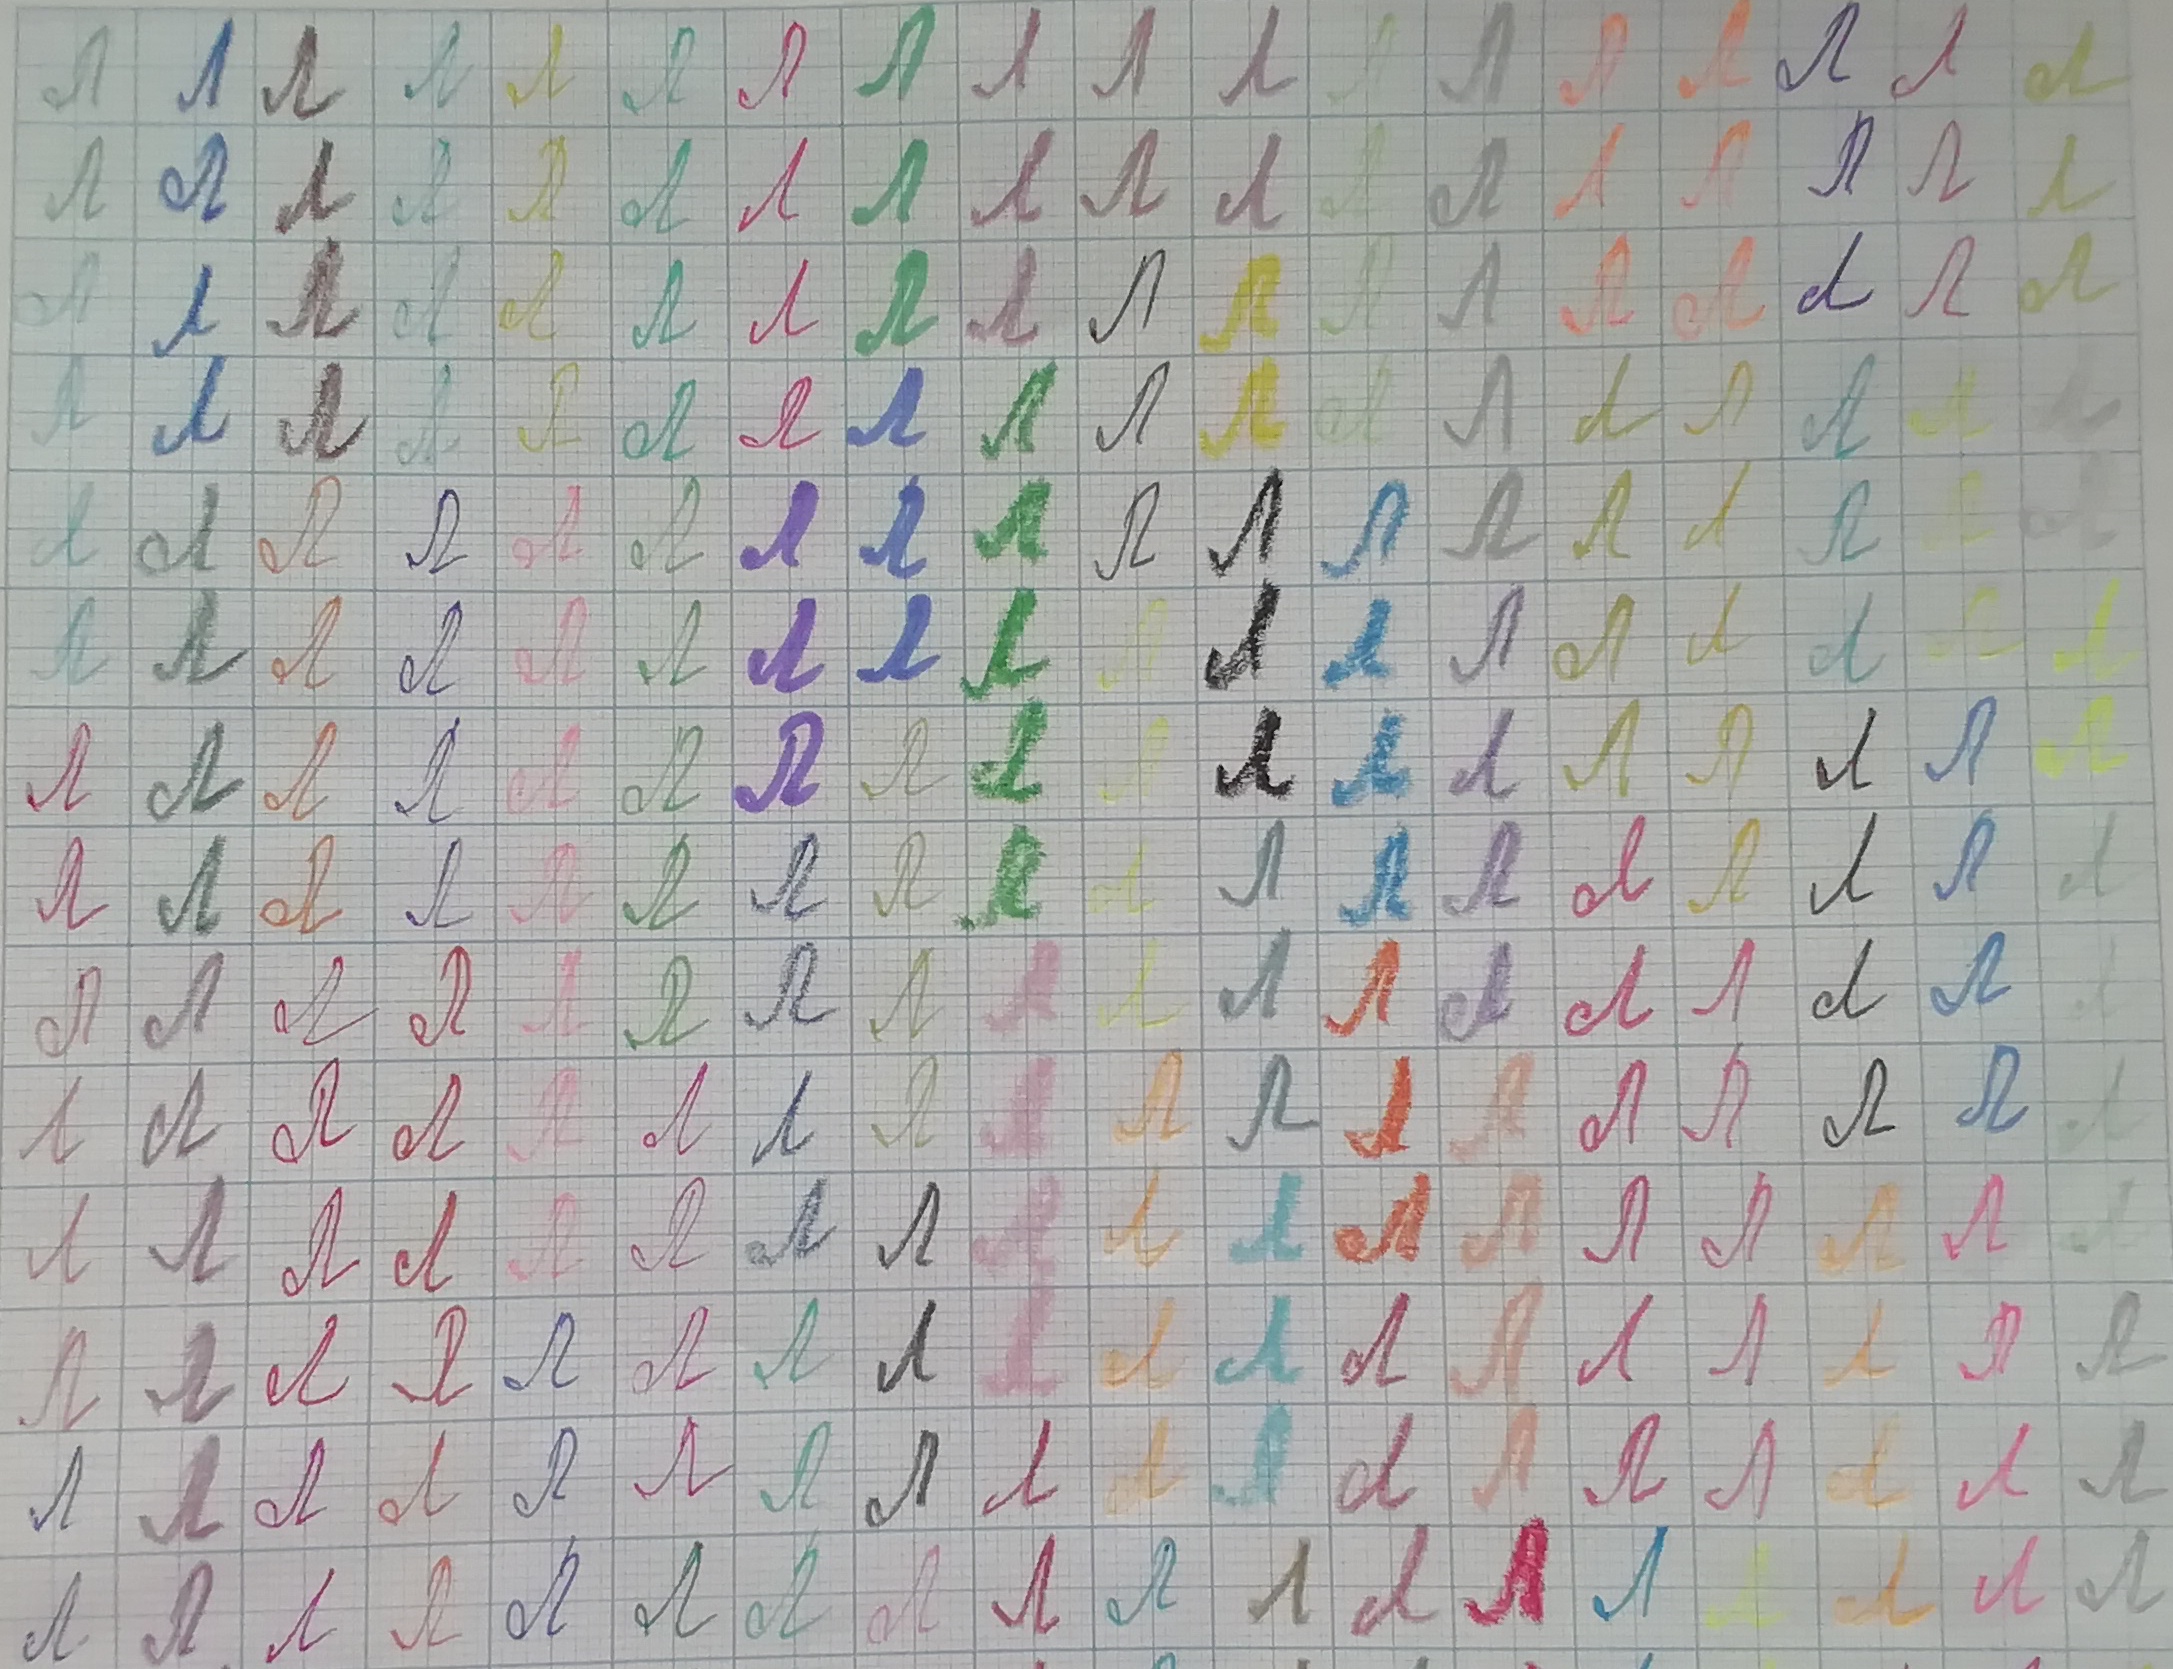 Л Л Л Л Л Л Л Л Л Л Л Л Л Л Л Л Л Л
Л Л Л Л Л Л Л Л Л Л Л Л Л Л Л Л Л Л
Л Л Л Л Л Л Л Л Л Л Л Л Л Л Л Л Л Л
Л Л Л Л Л Л Л Л Л Л Л Л Л Л Л Л Л Л
Л Л Л Л Л Л Л Л Л Л Л Л Л Л Л Л Л Л
Л Л Л Л Л Л Л Л Л Л Л Л Л Л Л Л Л Л
Л Л Л Л Л Л Л Л Л Л Л Л Л Л Л Л Л Л
Л Л Л Л Л Л Л Л Л Л Л Л Л Л Л Л Л Л
Л Л Л Л Л Л Л Л Л Л Л Л Л Л Л Л Л Л
Л Л Л Л Л Л Л Л Л Л Л Л Л Л Л Л Л Л
Л Л Л Л Л Л Л Л Л Л Л Л Л Л Л Л Л Л
Л Л Л Л Л Л Л Л Л Л Л Л Л Л Л Л Л Л
Л Л Л Л Л Л Л Л Л Л Л Л Л Л Л Л Л Л
Л Л Л Л Л Л Л Л Л Л Л Л Л Л Л Л Л Л